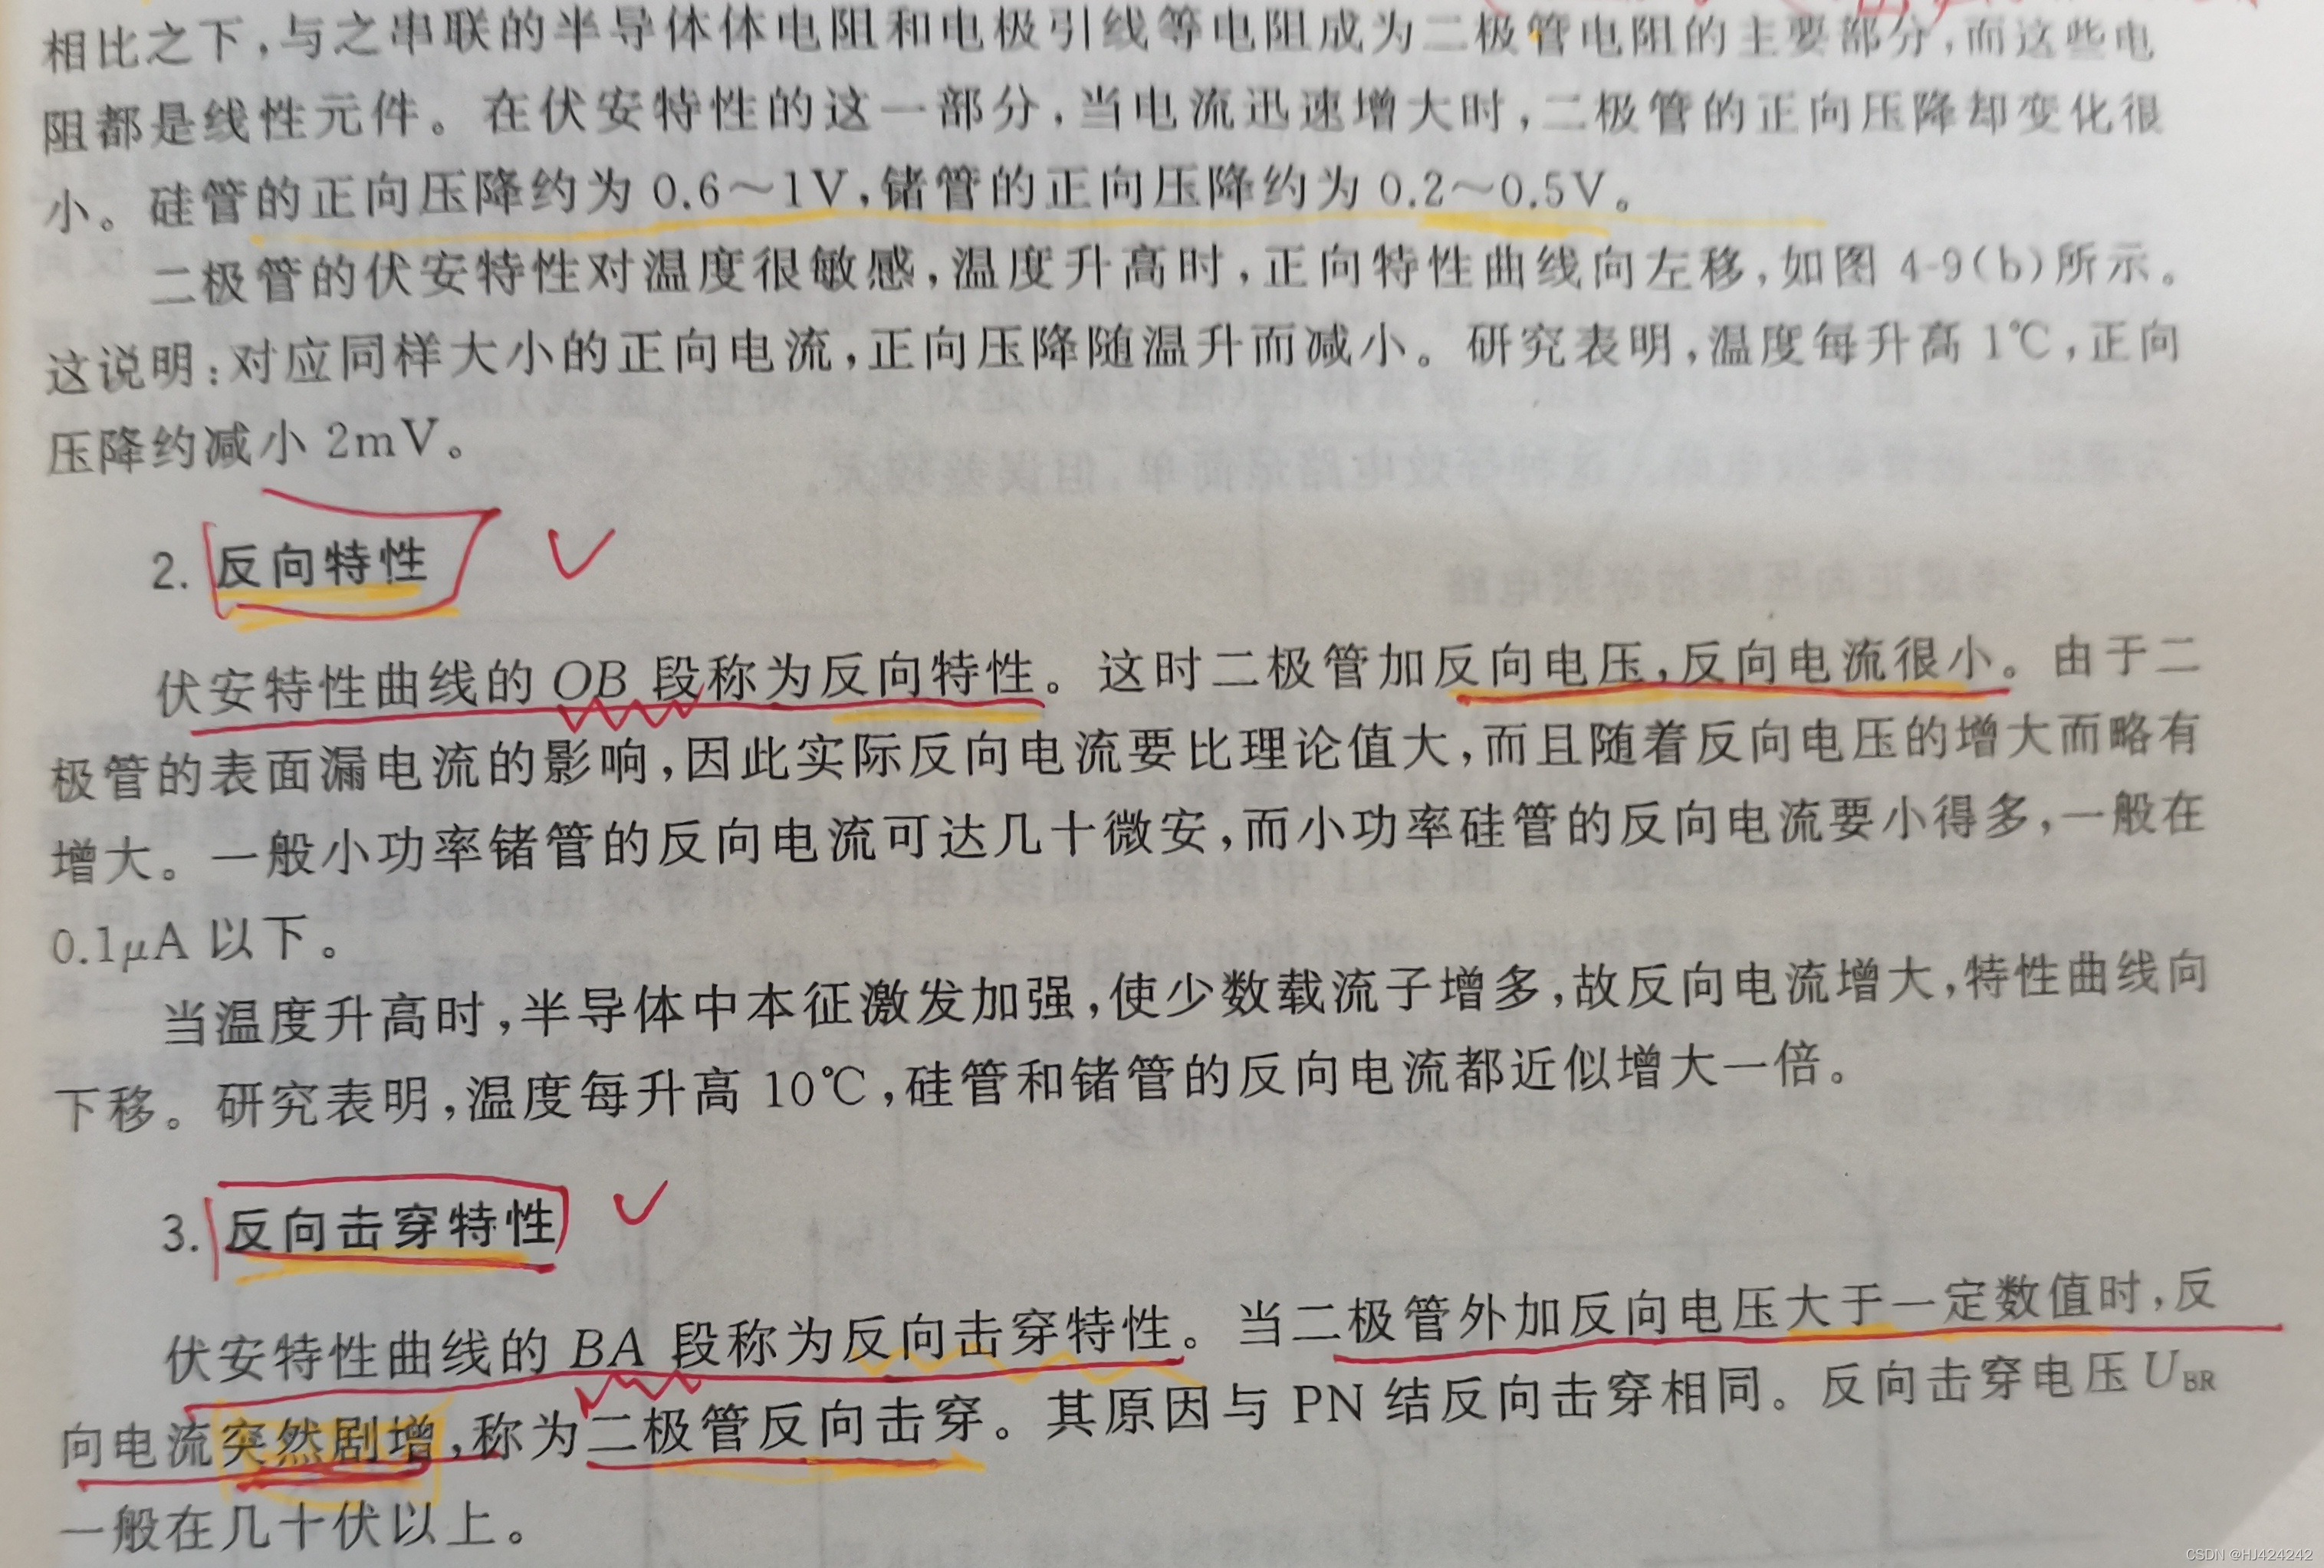 相比之下,与之串联的半导体体电阻和电极引线等电阻成为二极管电阻的主要部分,而这些电
阻都是线性元件。在伏安特性的这一部分,当电流迅速增大时,二极管的正向压降却变化很
小。硅管的正向压降约为 0.6~1V,锗管的正向压降约为 0.2~0.5V。
二极管的伏安特性对温度很敏感,温度升高时,正向特性曲线向左移,如图 4-9(b)所示。
这说明:对应同样大小的正向电流,正向压降随温升而减小。研究表明,温度每升高 1℃,正向
压降约减小 2mV。
2. 反向特性
伏安特性曲线的 OB 段称为反向特性。这时二极管加反向电压,反向电流很小。由于二
极管的表面漏电流的影响,因此实际反向电流要比理论值大,而且随着反向电压的增大而略有
增大。一般小功率锗管的反向电流可达几十微安,而小功率硅管的反向电流要小得多,一般在
0.1μA 以下。
当温度升高时,半导体中本征激发加强,使少数载流子增多,故反向电流增大,特性曲线向
下移。研究表明,温度每升高 10℃,硅管和锗管的反向电流都近似增大一倍。
3. 反向击穿特性
伏安特性曲线的 BA 段称为反向击穿特性。当二极管外加反向电压大于一定数值时,反
向电流突然剧增,称为二极管反向击穿。其原因与 PN 结反向击穿相同。反向击穿电压 UBR
一般在几十伏以上。
CSDN @HJ424242